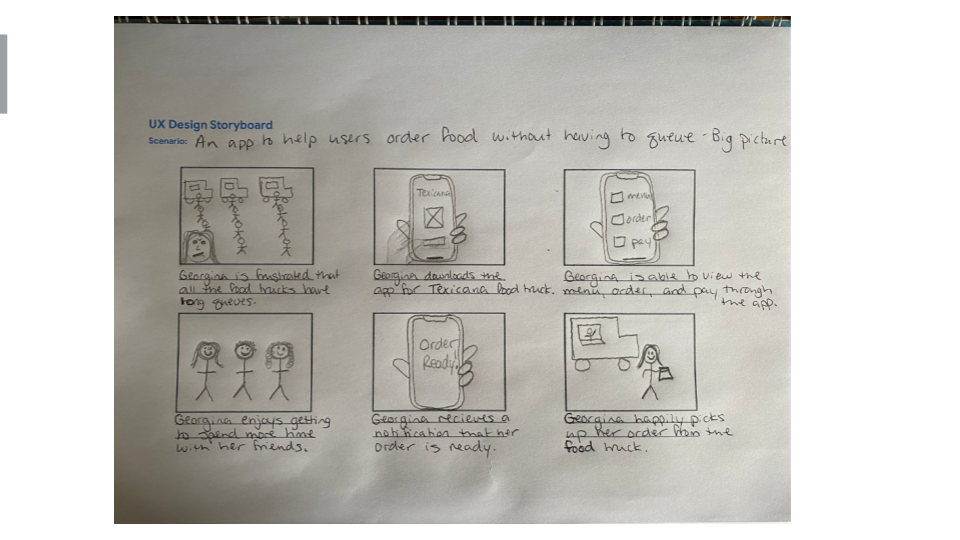 UX Design Storyboard
Scenario: An app to help users order food without having to queue - Big picture
Texicana
menu
order
pay
Georgina is frustrated that
all the food trucks have
long queues.
Georgina downloads the
app for Texicana food truck.
Georgina is able to view the
menu, order, and pay through
the app.
Order
Ready!
Georgina enjoys getting
to spend more time
with her friends.
Georgina recieves a
notification that her
order is ready.
Georgina happily picks
up her order from the
food truck.